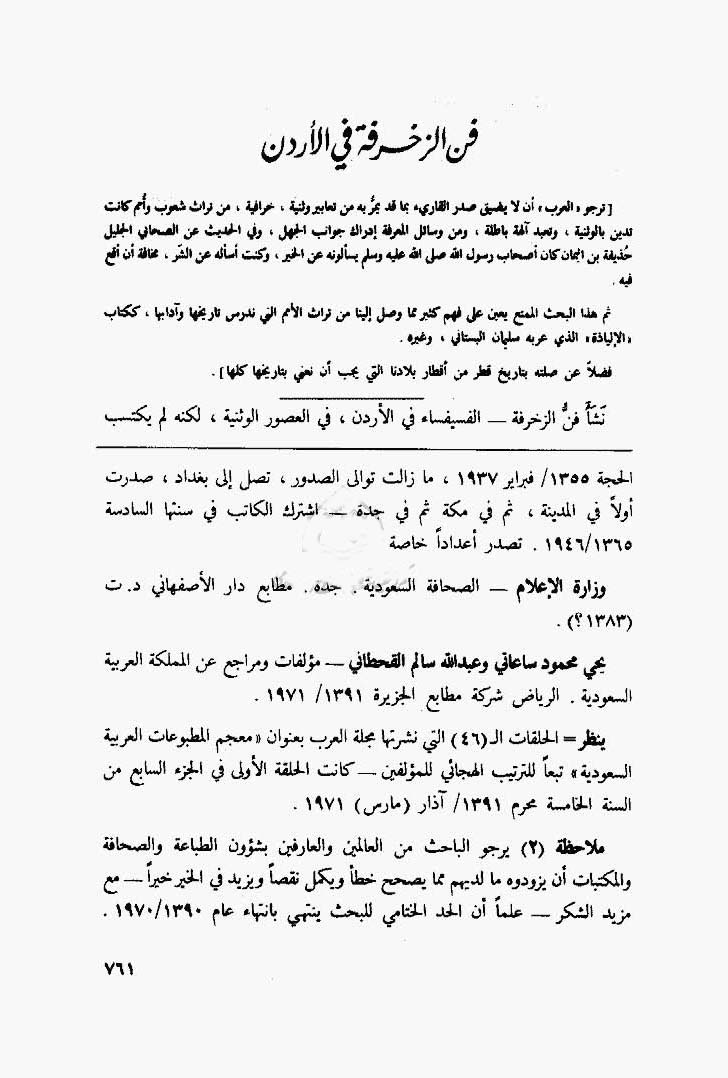 فن الزخرفة في الأردن
[ ترجو « العرب » أن لا يضيق صدر القاريء بما قد يمرُّ به من تعابير وثنية ، خرافية ، من تراث شعوب وأُمم كانت
تدين بالوثنية ، وتعبد آلهة باطلة ، ومن وسائل المعرفة إدراك جوانب الجهل ، وفي الحديث عن الصحابي الجليل
حُذيفة بن اليمان كان أصحاب رسول الله صلى الله عليه وسلم يسألونه عن الخير ، وكنت أسأله عن الشّر ، مخافة أن أقع
فيه .
ثم هذا البحث الممتع يعين على فهم كثير مما وصل إلينا من تراث الأمم التي ندرس تاريخها وآدابها ، ككتاب
« الإلياذة » الذي عربه سليمان البستاني ، وغيره .
فضلاً عن صلته بتاريخ قطر من أقطار بلادنا التي يجب أن نعني بتاريخها كلها ] .
نَشَأَ فنُّ الزخرفة — الفسيفساء في الأردن ، في العصور الوثنية ، لكنه لم يكتسب
الحجة ١٣٥٥/ فبراير ١٩٣٧ ، ما زالت توالى الصدور ، تصل إلى بغداد ، صدرت
أولاً في المدينة ، ثم في مكة ثم في جدة — اشترك الكاتب في سنتها السادسة
١٩٤٦/١٣٦٥ . تصدر أعداداً خاصة
وزارة الإعلام — الصحافة السعودية . جده . مطابع دار الأصفهاني د. ت
(١٣٨٣ ؟) .
يحي محمود ساعاتي وعبدالله سالم القحطاني — مؤلفات ومراجع عن المملكة العربية
السعودية . الرياض شركة مطابع الجزيرة ١٣٩١/ ١٩٧١ .
ينظر = الحلقات الـ (٤٦) التي نشرتها مجلة العرب بعنوان « معجم المطبوعات العربية
السعودية » تبعاً للترتيب الهجائي للمؤلفين — كانت الحلقة الأولى في الجزء السابع من
السنة الخامسة محرم ١٣٩١/ آذار (مارس) ١٩٧١ .
ملاحظة (٢) يرجو الباحث من العالمين والعارفين بشؤون الطباعة والصحافة
والمكتبات أن يزودوه ما لديهم مما يصحح خطأ ويكمل نقصاً ويزيد في الخير خيراً — مع
مزيد الشكر — علماً أن الحد الختامي للبحث ينتهي بانتهاء عام ١٩٧٠/١٣٩٠ .
٧٦١